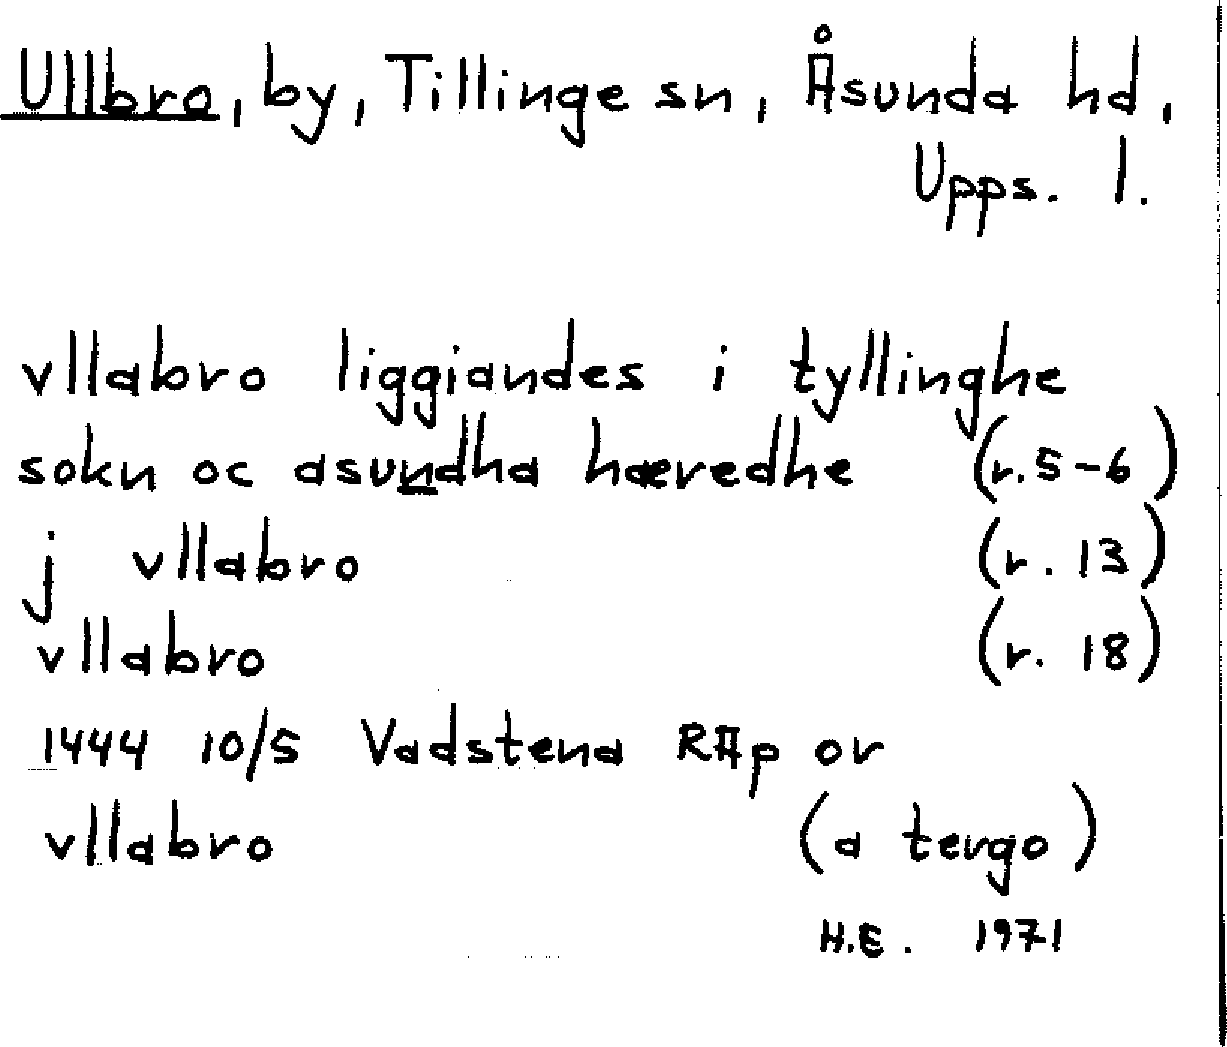 Ullbro, by, Tillinge sn, Åsunda hd,
Upps. l.
vllabro liggiandes i tyllinghe
sokn oc asundha hæredhe (r. 5-6)
j vllabro (r. 13)
vllabro (r. 18)
1444 10/5 Vadstena RAp or
vllabro (a tergo)
H.E. 1971